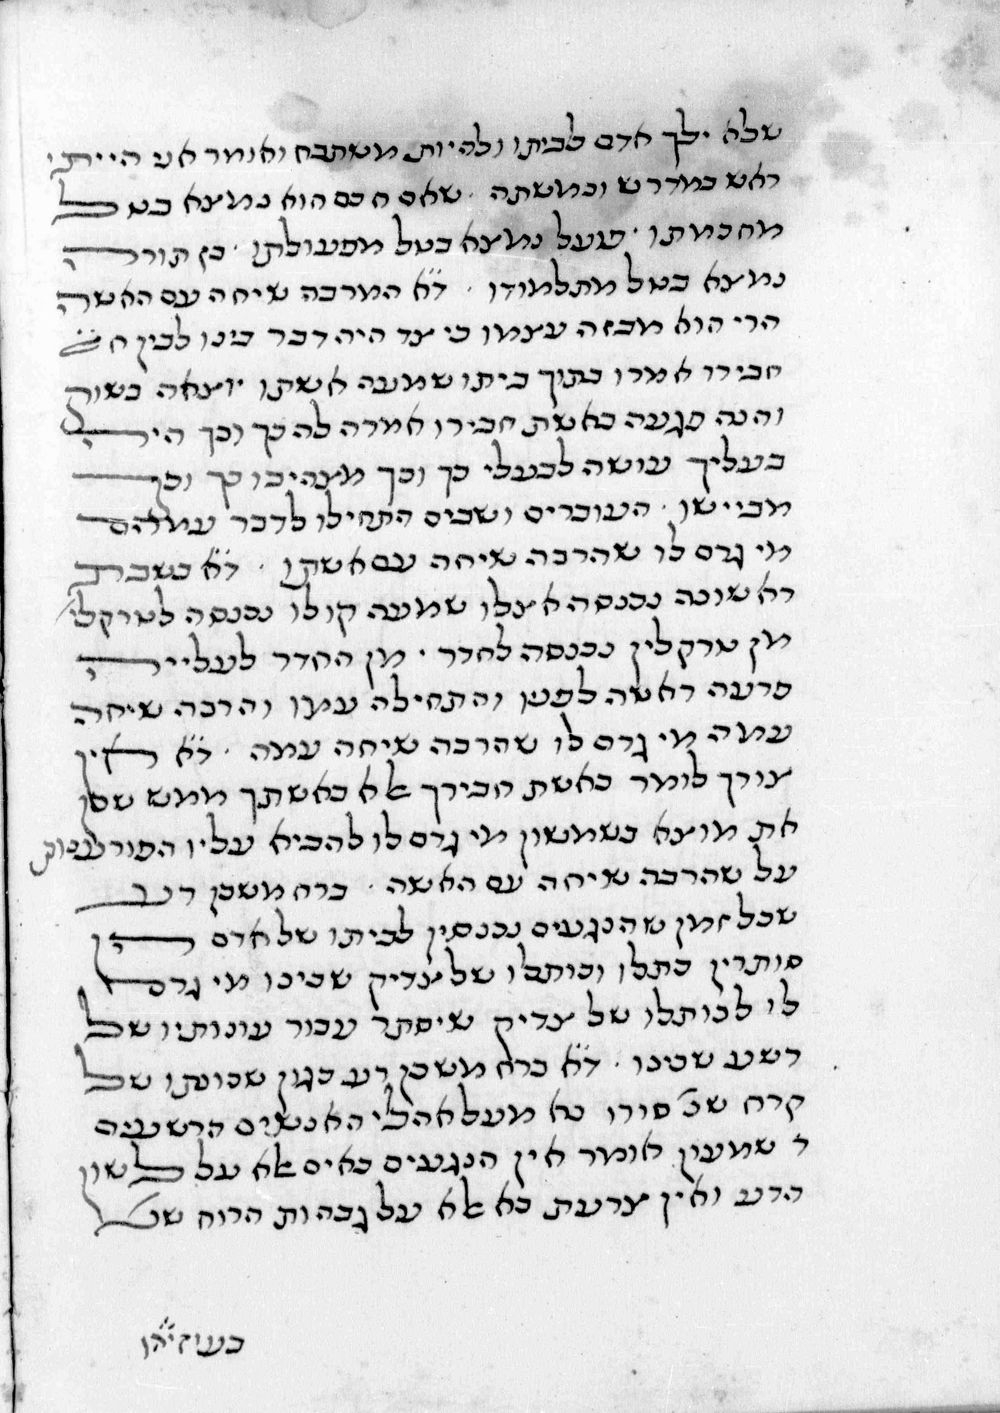 שלא ילך אדם לביתו ולהיות משתבח ואומר אני הייתי
ראש במדרש ובמשתה · שאם חכם הוא נמצא בטל
מחכמתו · פועל נמצא בטל מפעולתו · בן תורה
נמצא בטל מתלמודו · ד״א המרבה שיחה עם האשה
הרי הוא מבזה עצמו כיצד היה דבר בינו לבין
חבירו אמרו בתוך ביתו שמעה אשתו יוצאה בשוק
והנה פגעה באשת חבירו אמרה לה כך וכך היה
בעליך עושה לבעלי כך וכך מצהיבו כך וכך
מביישו · העוברים ושבים התחילו לדבר עמהם
מי גרם לו שהרבה שיחה עם אשתו · ד״א כשברת
ראשונה נכנסה אצלו שמעה קולו נכנסה לטרקלי׳
מן טרקלין נכנסה לחדר · מן החדר לעלייה
פרעה ראשה לפניו והתחילה עמו והרבה שיחה
עמה מי גרם לו שהרבה שיחה עמה · ד״א אין
צורך לומר באשת חבירך אלא באשתך ממש שכן
את מוצא בשמשון מי גרם לו להביא עליו הפורענות
על שהרבה שיחה עם האשה · ברח משכן רע
שכל זמן שהנגעים נכנסין לביתו של אדם הן
סותרין כתלו וכותבלו של צדיק שכינו מי גרם
לו לכותלו של צדיק שיסתר עבור עונותיו של
רשע שכינו · ד״א ברח משכן רע כגון שכונתו של
קרח שנ׳ סורו נא מעל אהלי האנשים הרשעים
ר שמעון אומר אין הנגעים באים אלא על לשון
הרע ואין צרעת בא אלא על גבהות הרוח של
בעוזיהו